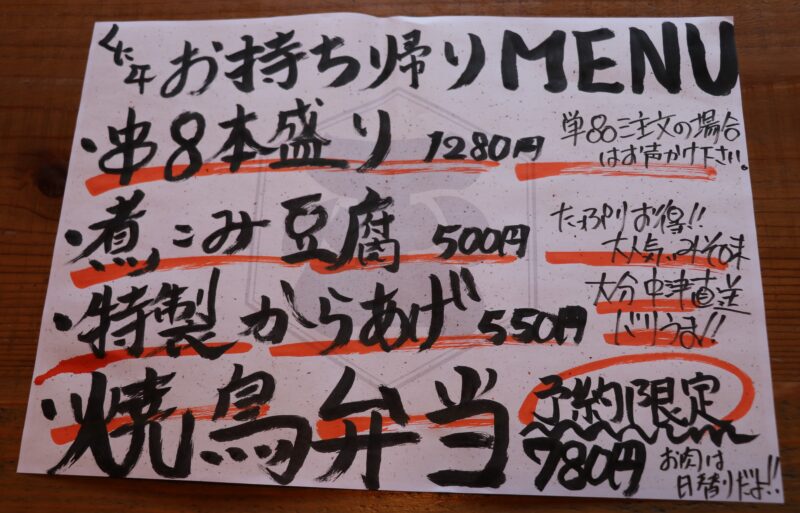 お持ち帰りMENU
・串8本盛り 1280円
単品注文の場合
はお声かけ下さい。
・煮こみ豆腐 500円
たっぷりお得!!
大人気みそ味
・特製からあげ 550円
大分中津直送
バリうま!!
・焼鳥弁当
予約限定
780円
お肉は
日替りだよ!!